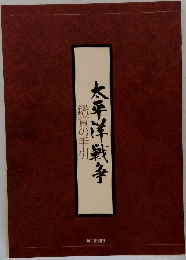 太平洋戦争
鑑賞の手引